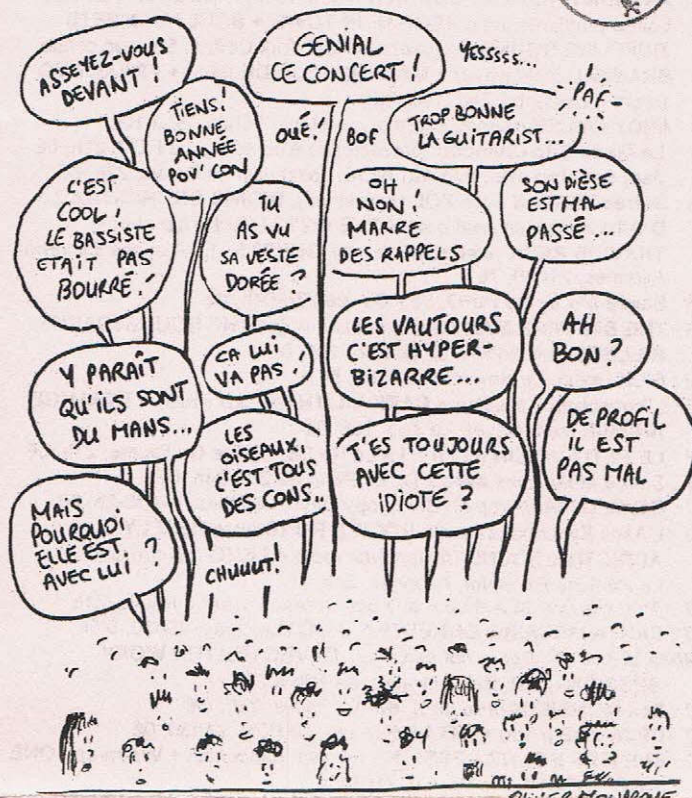 ASSEYEZ-VOUS
DEVANT !
GENIAL
CE CONCERT !
YESSSSS...
PAF
TIENS !
BONNE
ANNÉE
POV' CON
OUÉ !
BOF
TROP BONNE
LA GUITARIST...
C'EST
COOL !
LE BASSISTE
ETAIT PAS
BOURRÉ !
TU
AS VU
SA VESTE
DORÉE ?
OH
NON !
MARRE
DES RAPPELS
SON DIÈSE
EST MAL
PASSÉ...
Y PARAÎT
QU'ILS SONT
DU MANS...
CA LUI
VA PAS !
LES VAUTOURS
C'EST HYPER-
BIZARRE...
AH
BON ?
LES
OISEAUX,
C'EST TOUS
DES CONS...
T'ES TOUJOURS
AVEC CETTE
IDIOTE ?
DE PROFIL
IL EST
PAS MAL
MAIS
POURQUOI
ELLE EST
AVEC LUI ?
CHUUUT !